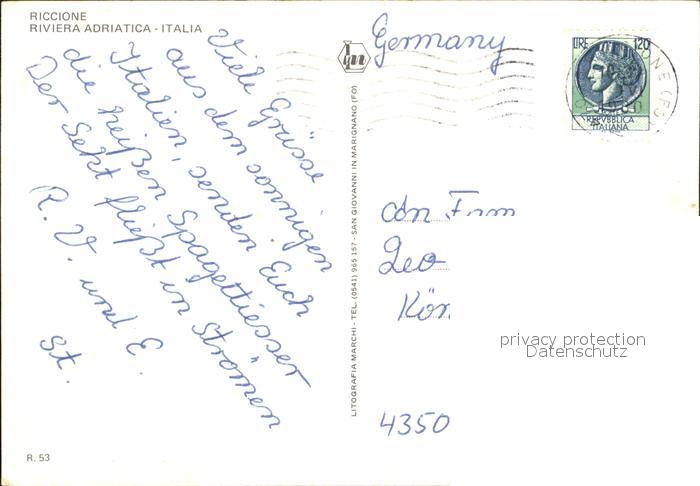 RICCIONE
RIVIERA ADRIATICA - ITALIA
Viele Grüsse
aus dem sonnigen
Italien, senden Euch
die heißen Spagettiesser
Der Sekt fließt in Strömen
R. V. und E.
St.
R. 53
LITOGRAFIA MARCHI - TEL. (0541) 965 157 - SAN GIOVANNI IN MARIGNANO (FO)
Germany
LIRE 120
REPVBBLICA
ITALIANA
An Fam
Leo
Kör
4350
privacy protection
Datenschutz